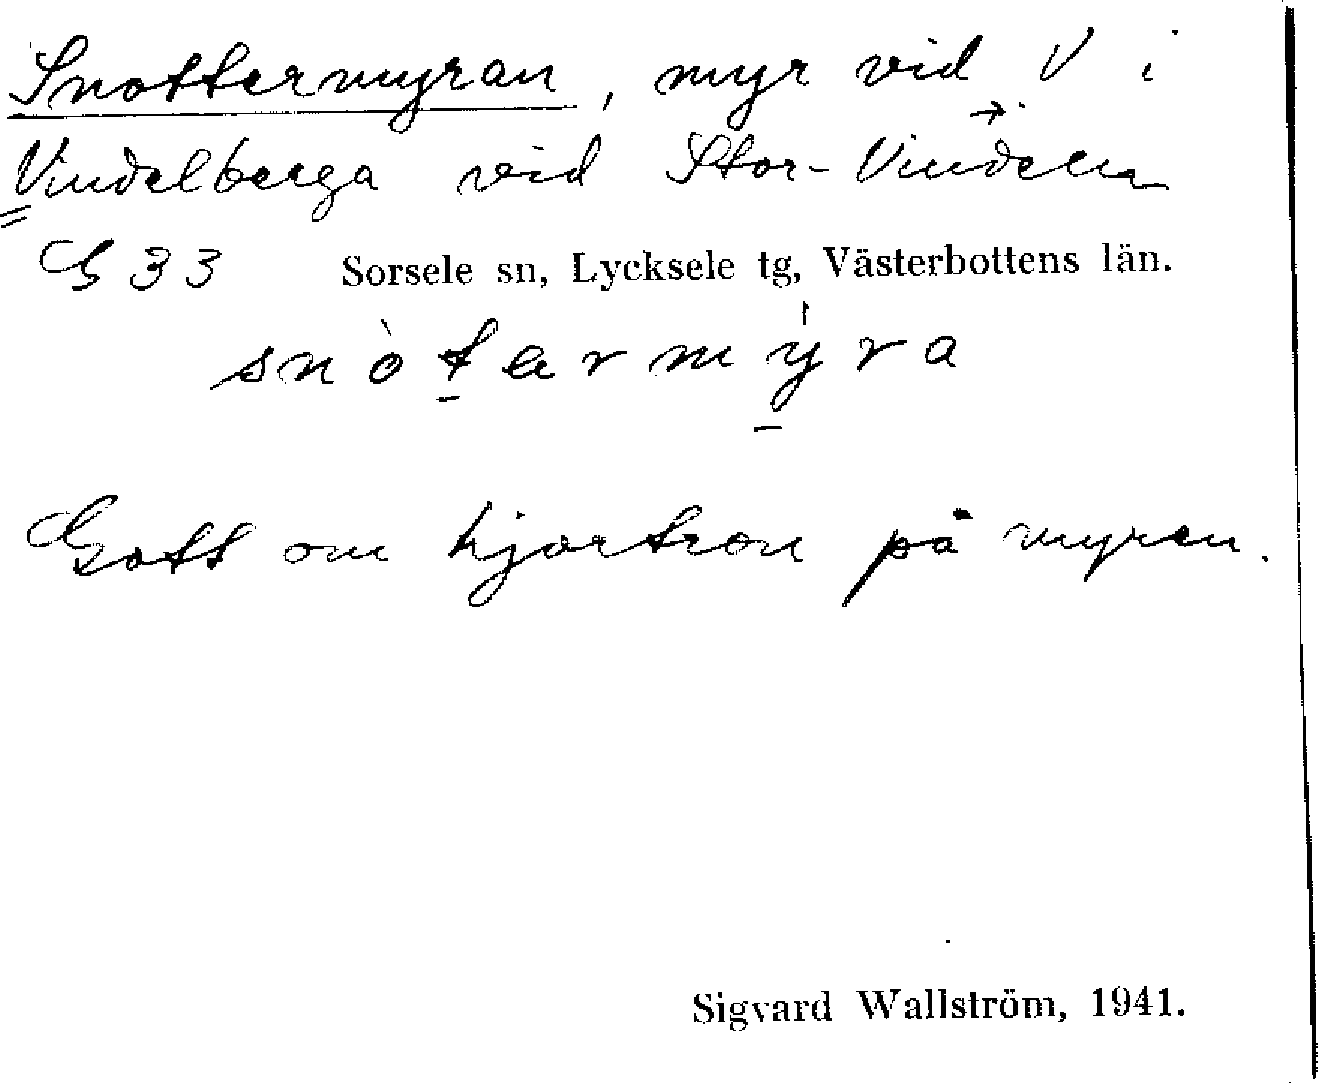 Snottermyran, myr vid V i
Vindelberga vid Stor-Vindeln
G 33 Sorsele sn, Lycksele tg, Västerbottens län.
snòtermýra
Gott om hjortron på myren.
Sigvard Wallström, 1941.